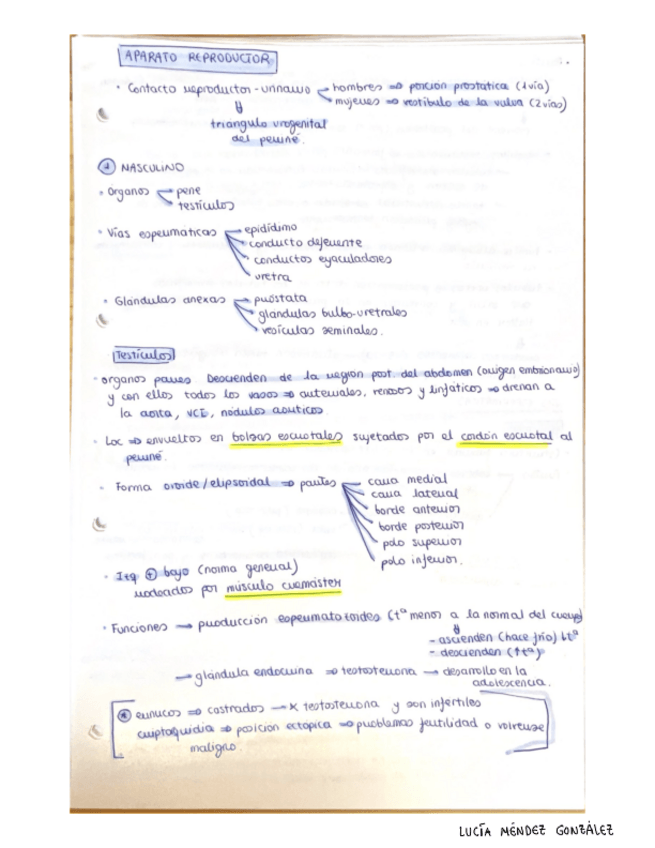 APARATO REPRODUCTOR
· Contacto reproductor-urinario → hombres ⇒ porción prostática (1 vía)
→ mujeres ⇒ vestíbulo de la vulva (2 vías)
⇓
triángulo urogenital
del periné.
① NASCULINO
· Organos → pene
→ testículos
· Vías espermáticas → epidídimo
→ conducto deferente
→ conductos eyaculadores
→ uretra
· Glándulas anexas → próstata
→ glándulas bulbo-uretrales
→ vesículas seminales.
Testículos
· organos pares. Descienden de la region post. del abdomen (origen embrionario)
y con ellos todos los vasos ⇒ arteriales, renosos y linfáticos ⇒ drenan a
la aorta, VCI, nódulos aórticos
· Loc ⇒ envueltos en bolsas escrotales sujetados por el cordón escrotal al
periné.
· Forma ovoide/elipsoidal ⇒ partes → cara medial
→ cara lateral
→ borde anterior
→ borde posterior
→ polo superior
→ polo inferior.
· Izq ⊕ bajo (norma general)
rodeados por músculo cremáster
· Funciones → producción espermatozoides (tª menor a la normal del cuerpo)
⇓
- ascienden (hace frío) ↓tª
- descienden (↑tª)
→ glándula endocrina ⇒ testosterona → desarrollo en la
adolescencia.
eunucos ⇒ castrados → x testosterona y son infertiles
criptoquidia ⇒ posición ectópica ⇒ problemas fertilidad o volverse
maligno.
LUCÍA MÉNDEZ GONZÁLEZ